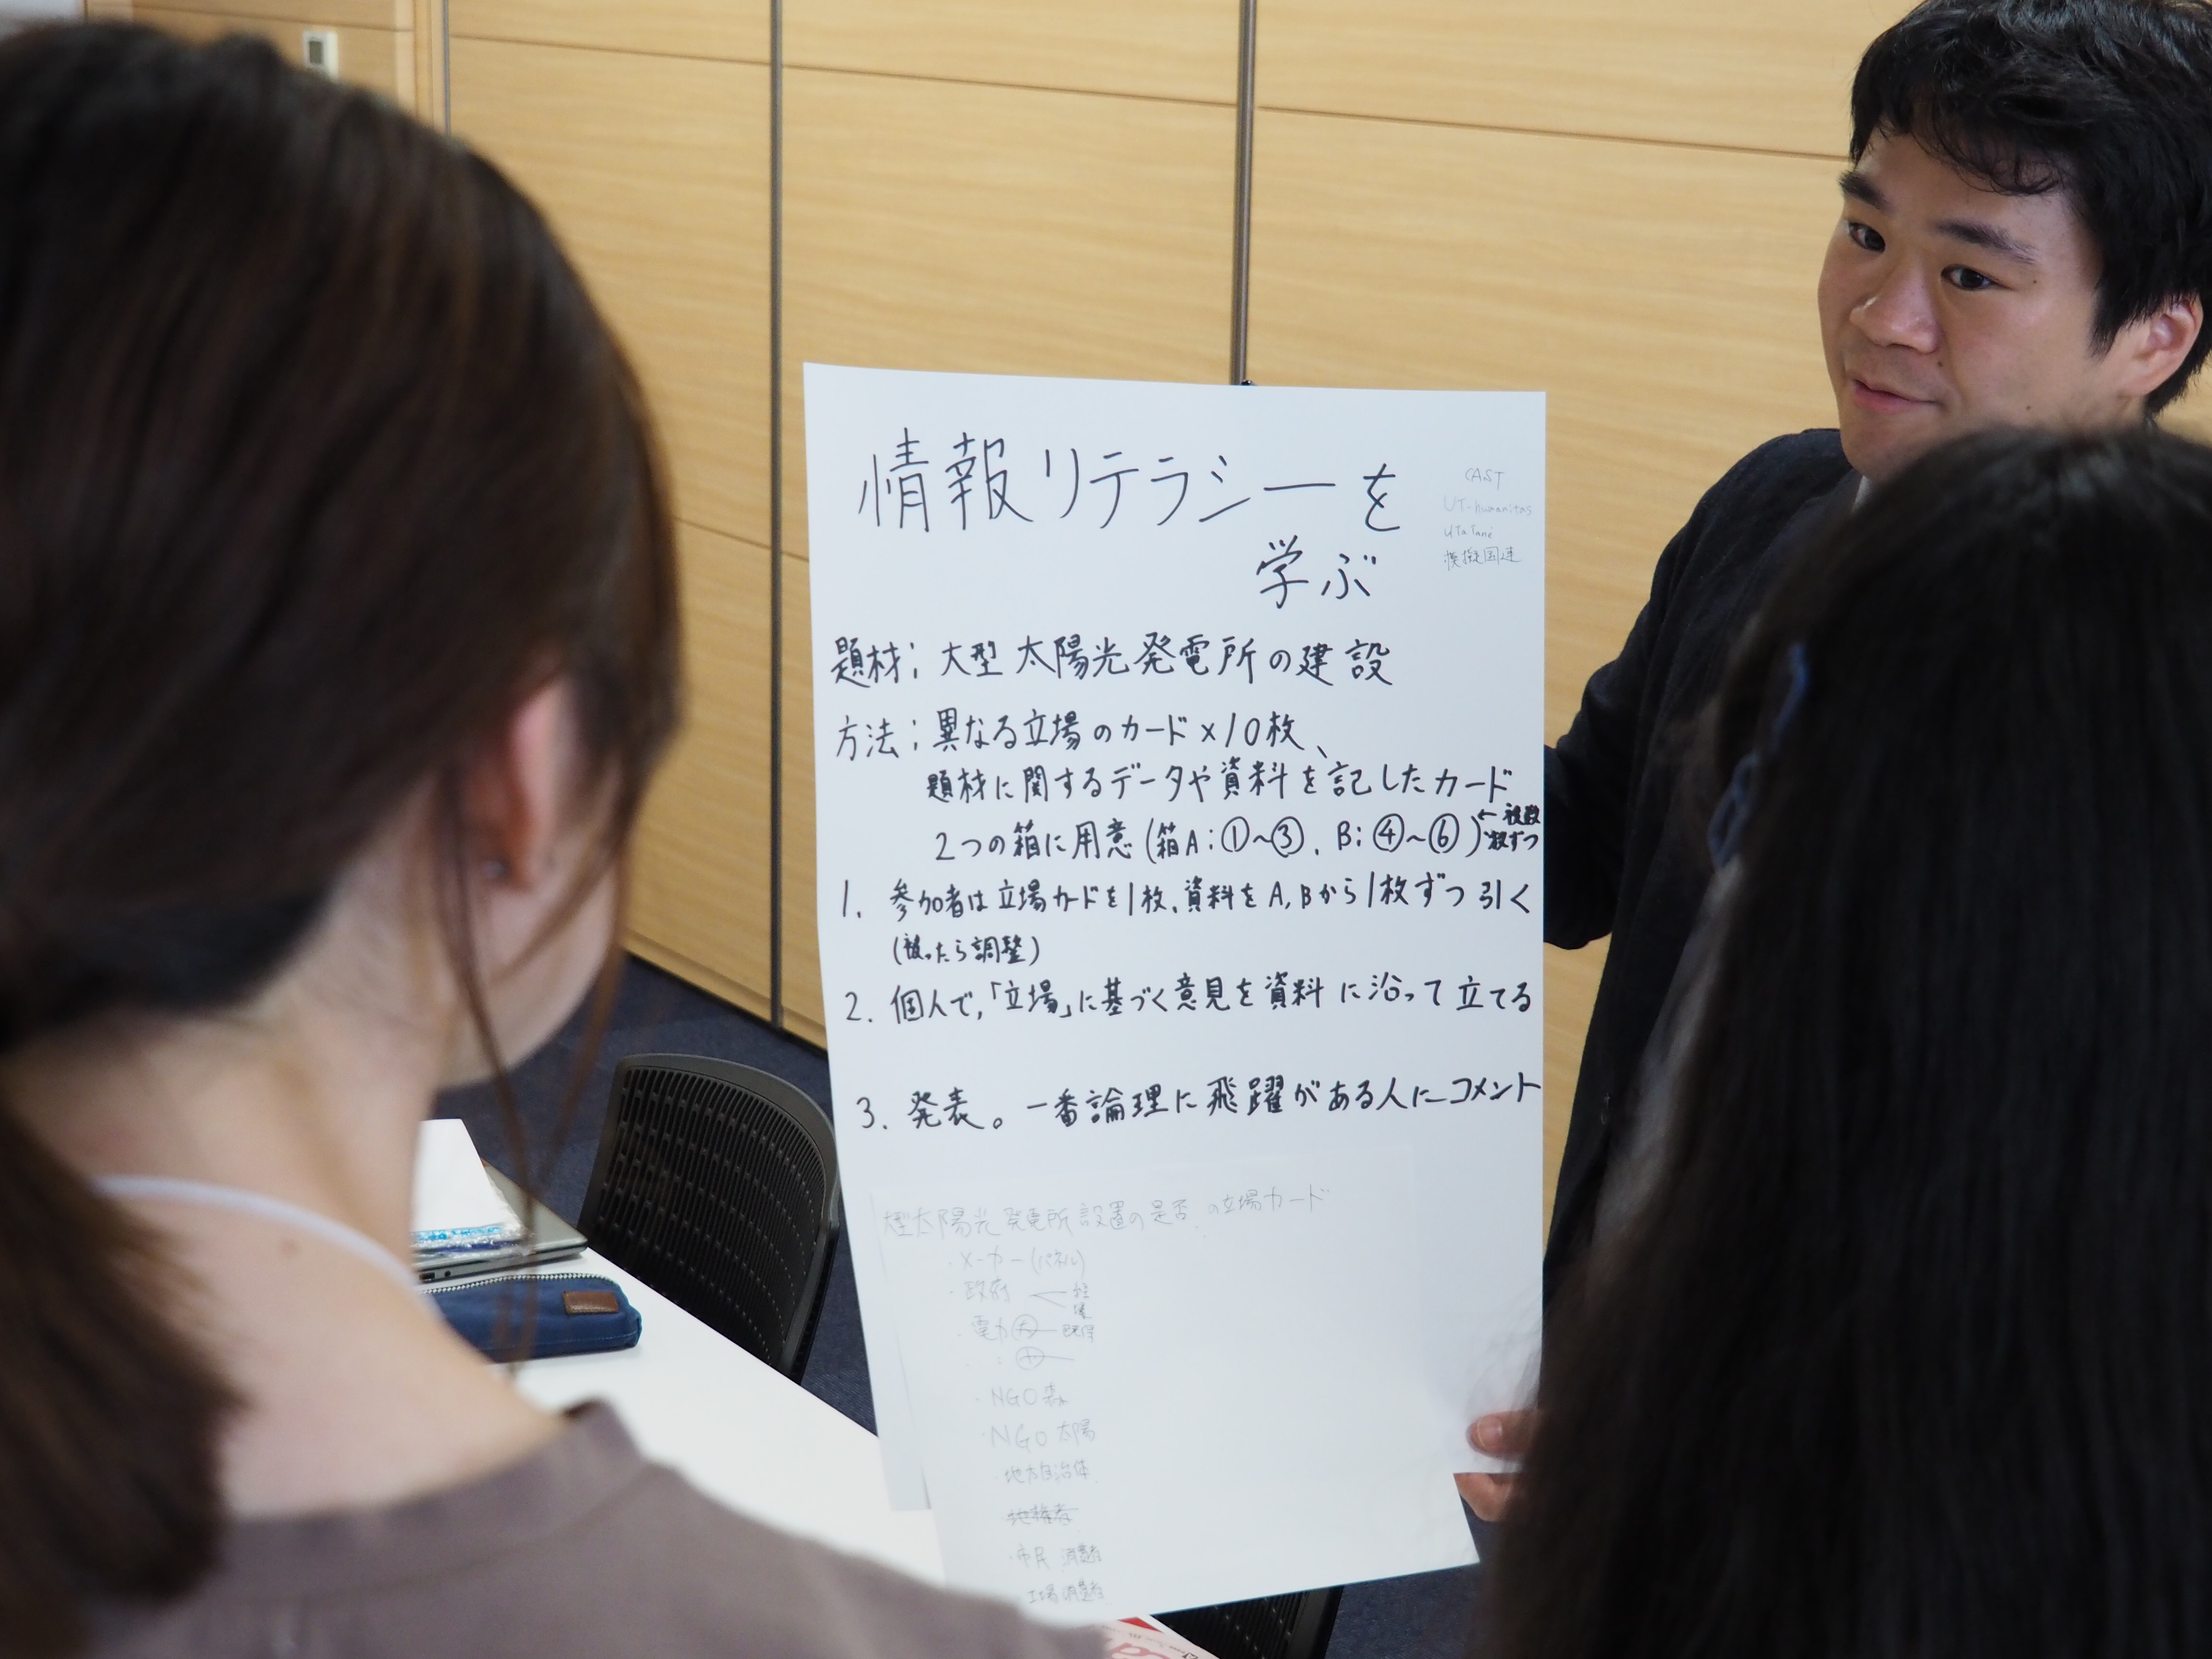 情報リテラシーを
学ぶ
CAST
UT-humanitas
UTaTané
模擬国連
題材：大型太陽光発電所の建設
方法：異なる立場のカード×10枚、
題材に関するデータや資料を記したカード
2つの箱に用意(箱A:①～③、B:④～⑥)←複数枚ずつ
1. 参加者は立場カードを1枚、資料をA,Bから1枚ずつ引く
(被ったら調整)
2. 個人で,「立場」に基づく意見を資料に沿って立てる
3. 発表。一番論理に飛躍がある人にコメント
大型太陽光発電所設置の是否の立場カード
・メーカー(パネル)
・政府
・電力大
・NGO 森
・NGO 太陽
・地方自治体
・地権者
・市民 消費者
工場 消費者